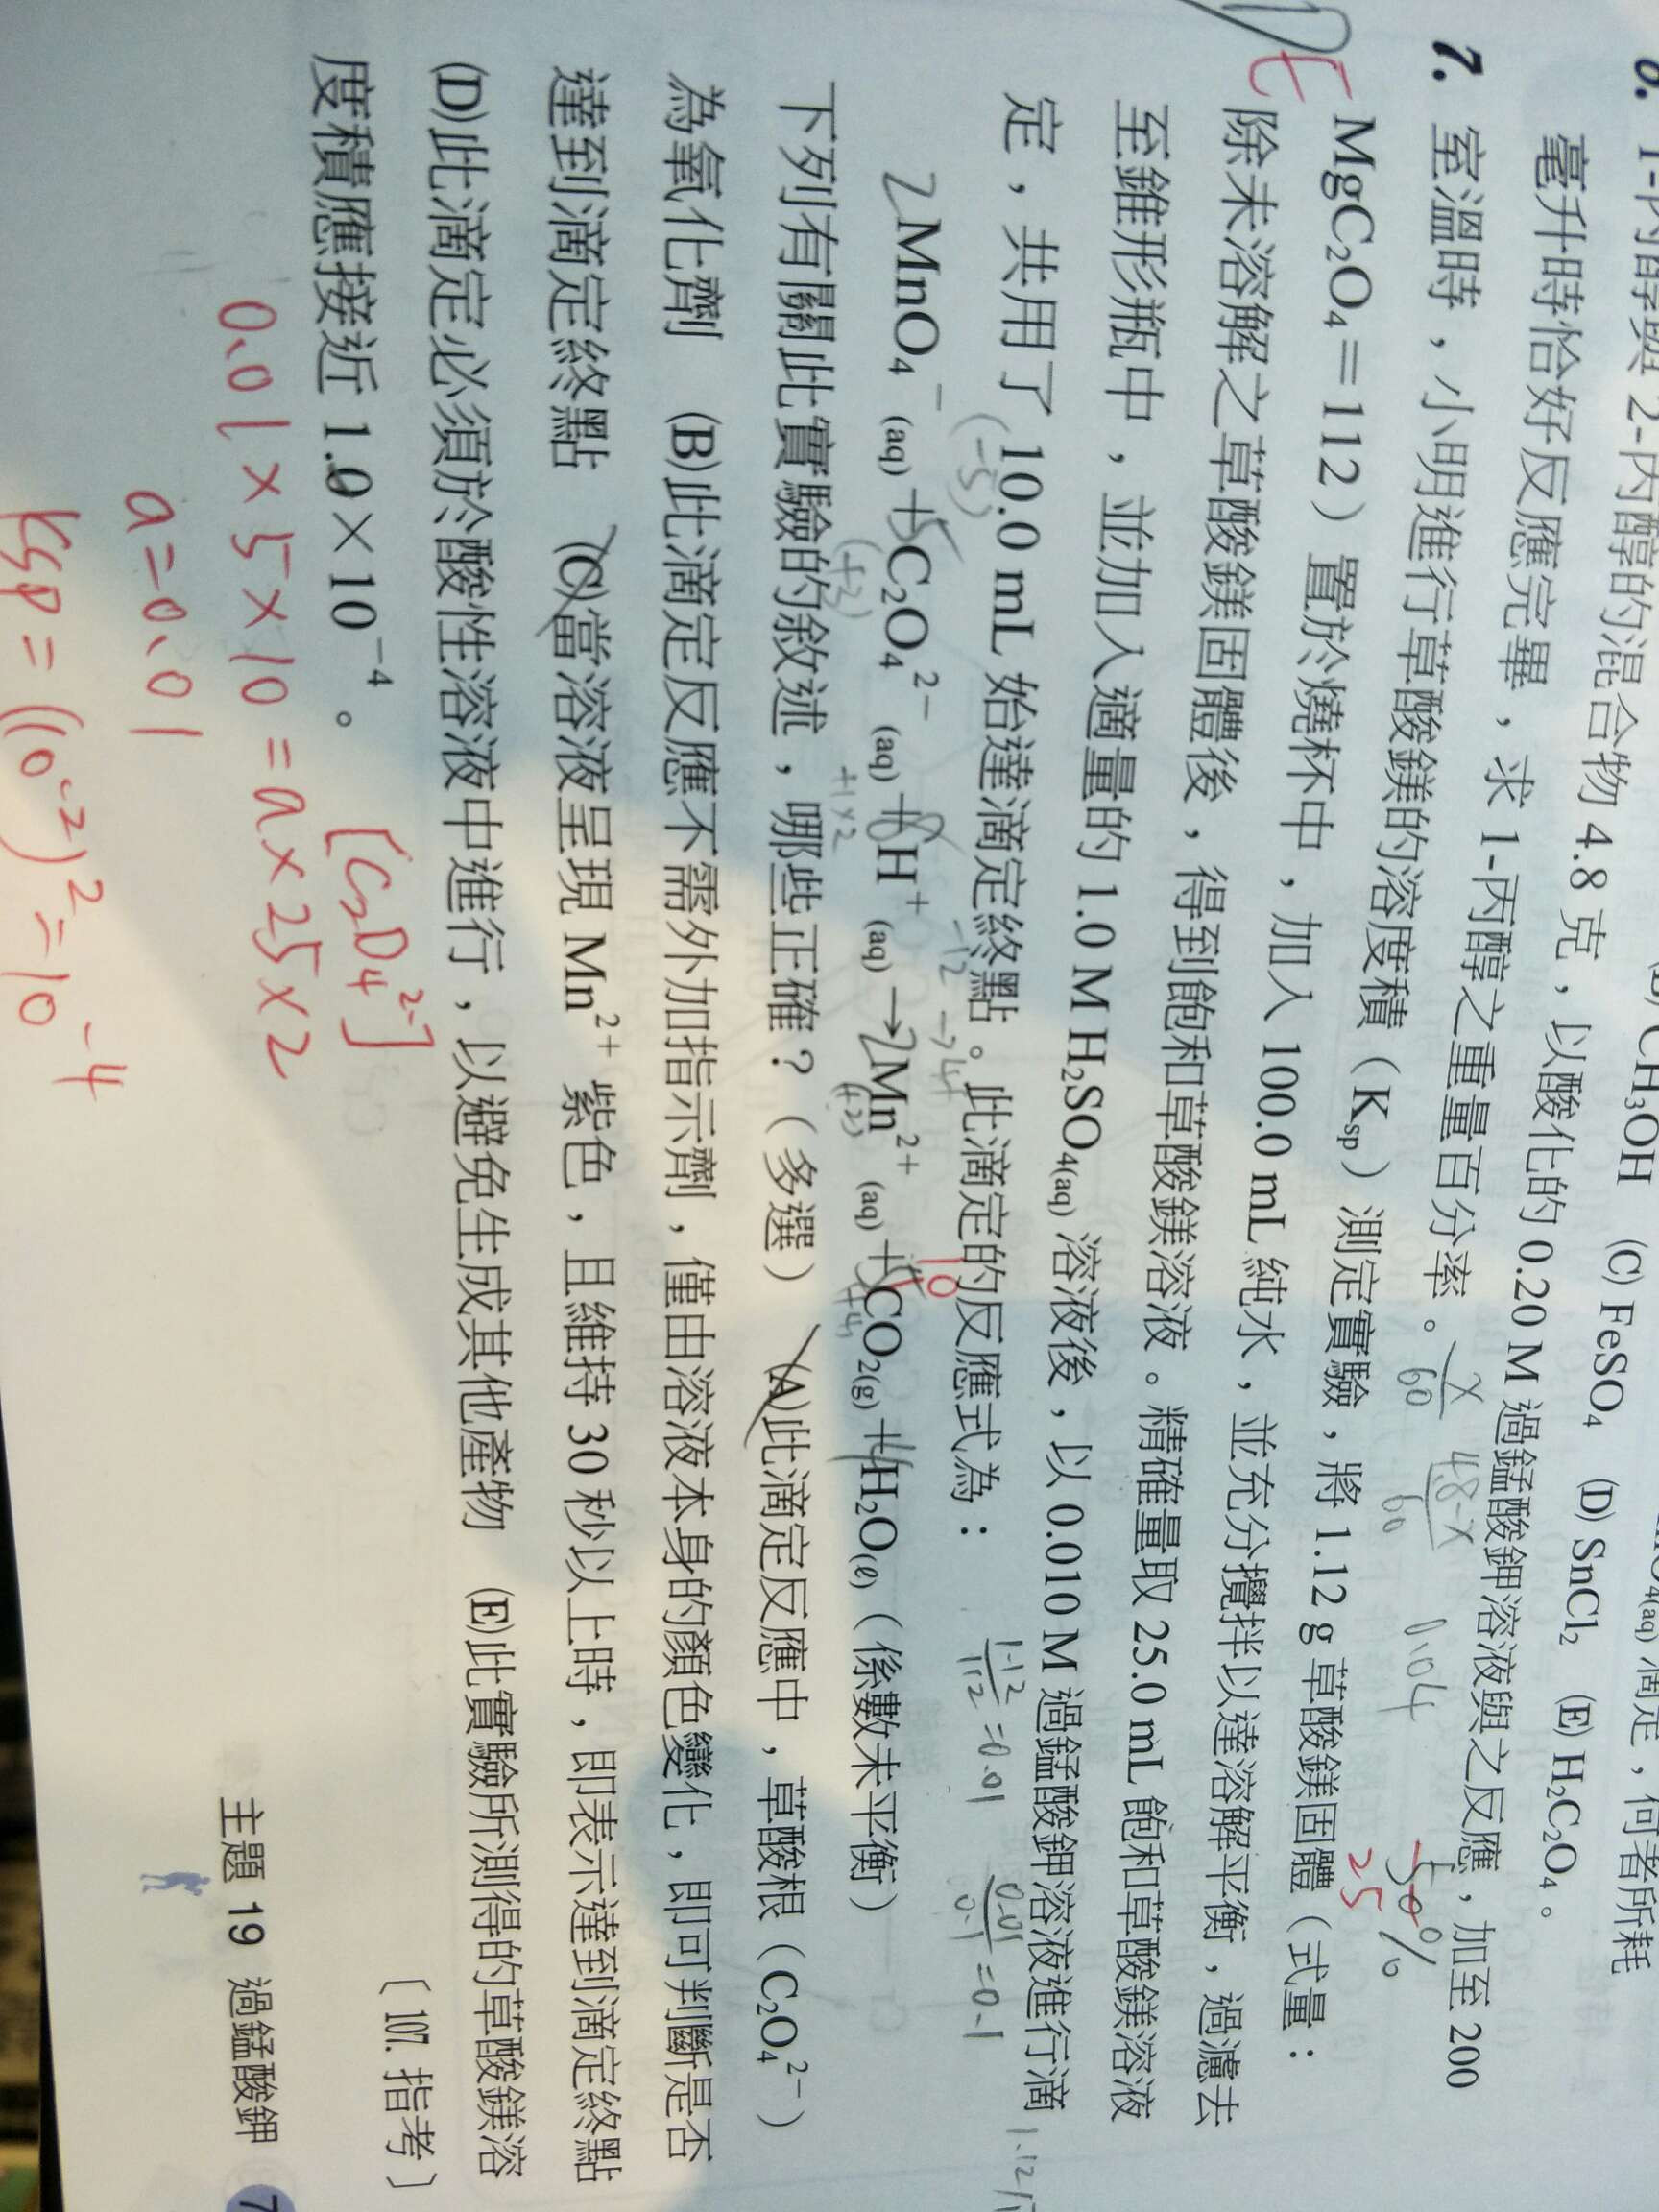 6. 1-丙醇與 2-丙醇的混合物 4.8 克,以酸化的 0.20 M 過錳酸鉀溶液與之反應,加至 200
毫升時恰好反應完畢,求 1-丙醇之重量百分率。
CH₃OH (C) FeSO₄ (D) SnCl₂ (E) H₂C₂O₄。
滴定,何者所耗
x/60
4.8-x/60
0.04
25 %
7. 室溫時,小明進行草酸鎂的溶度積(Ksp)測定實驗,將 1.12 g 草酸鎂固體(式量:
MgC₂O₄=112)置於燒杯中,加入 100.0 mL 純水,並充分攪拌以達溶解平衡,過濾去
除未溶解之草酸鎂固體後,得到飽和草酸鎂溶液。精確量取 25.0 mL 飽和草酸鎂溶液
至錐形瓶中,並加入適量的 1.0 M H₂SO₄(aq) 溶液後,以 0.010 M 過錳酸鉀溶液進行滴
定,共用了 10.0 mL 始達滴定終點。此滴定的反應式為:
1.12/112 = 0.01
0.01/0.1 = 0.1
(-5)
-12 → 4
10
2 MnO₄⁻(aq)+5 C₂O₄²⁻(aq)+ H⁺(aq)→2Mn²⁺(aq)+ CO₂(g)+ H₂O(ℓ)(係數未平衡)
(+2)
+1×2
(+2)
+4
下列有關此實驗的敘述,哪些正確?(多選) (A)此滴定反應中,草酸根(C₂O₄²⁻)
為氧化劑 (B)此滴定反應不需外加指示劑,僅由溶液本身的顏色變化,即可判斷是否
達到滴定終點 (C)當溶液呈現 Mn²⁺ 紫色,且維持 30 秒以上時,即表示達到滴定終點
(D)此滴定必須於酸性溶液中進行,以避免生成其他產物 (E)此實驗所測得的草酸鎂溶
度積應接近 1.0×10⁻⁴。
〔107. 指考〕
[C₂O₄²⁻]
0.01×5×10=a×25×2
a=0.01
Ksp=(10⁻²)²=10⁻⁴
主題 19 過錳酸鉀 7